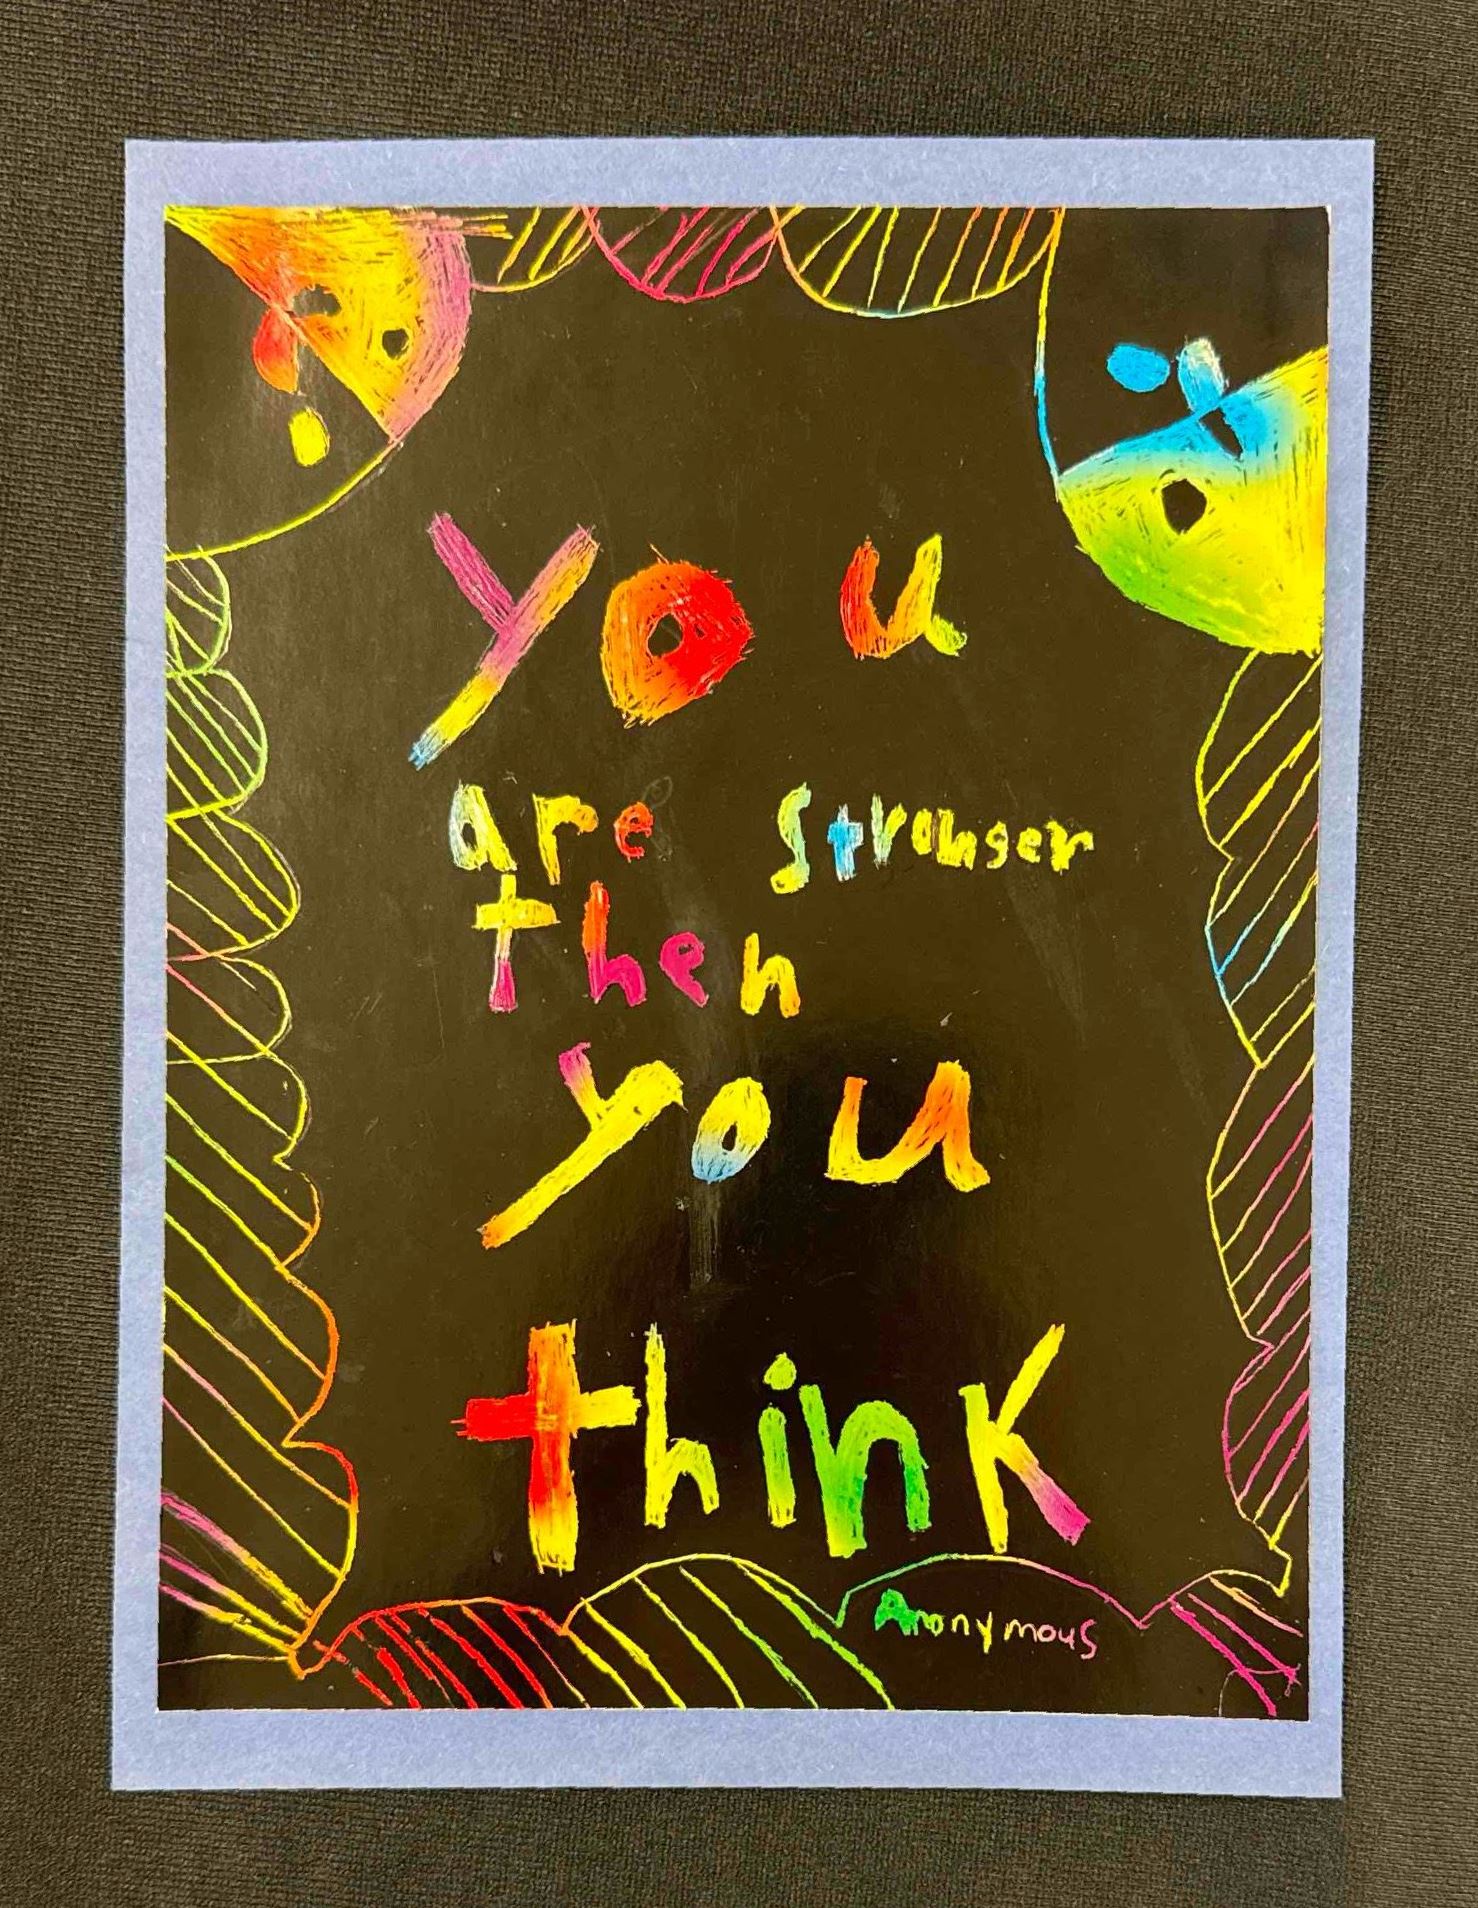 you
are stronger
then
you
think
Anonymous